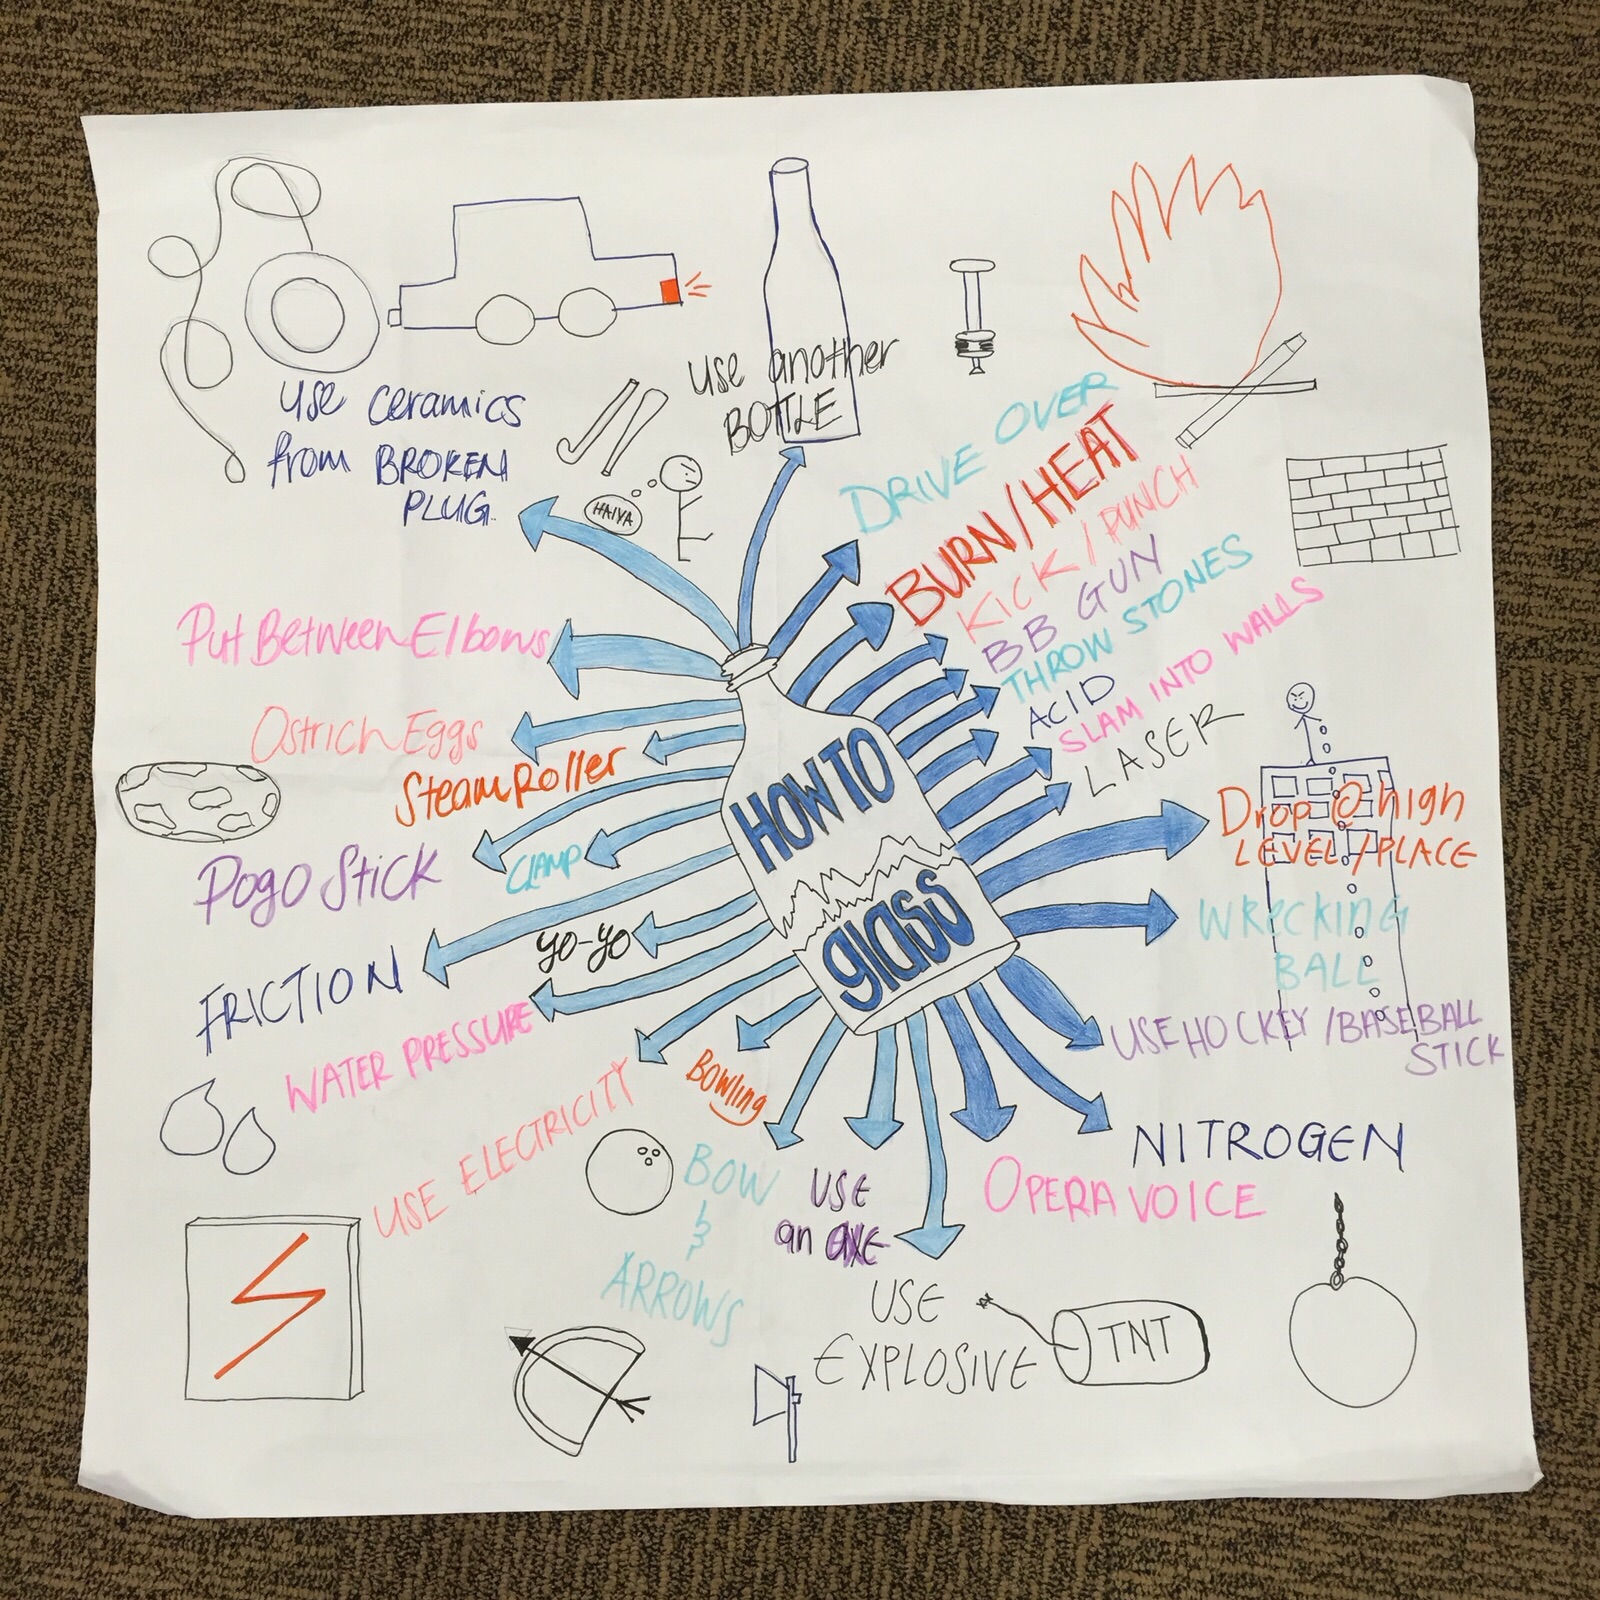 HOW TO
glass
use another
BOTTLE
DRIVE OVER
BURN/HEAT
KICK/PUNCH
BB GUN
THROW STONES
ACID
SLAM INTO WALLS
LASER
Drop @ high
LEVEL/PLACE
WRecking
BALL
USE HOCKEY/BASEBALL
STICK
NITROGEN
OPERA VOICE
USE
EXPLOSIVE
TNT
USE
an axe
BOW
&
ARROWS
Bowling
USE ELECTRICITY
WATER PRESSURE
yo-yo
FRICTION
CLAMP
Pogo Stick
SteamRoller
Ostrich Eggs
Put Between Elbows
use ceramics
from BROKEN
PLUG.
HAIYA